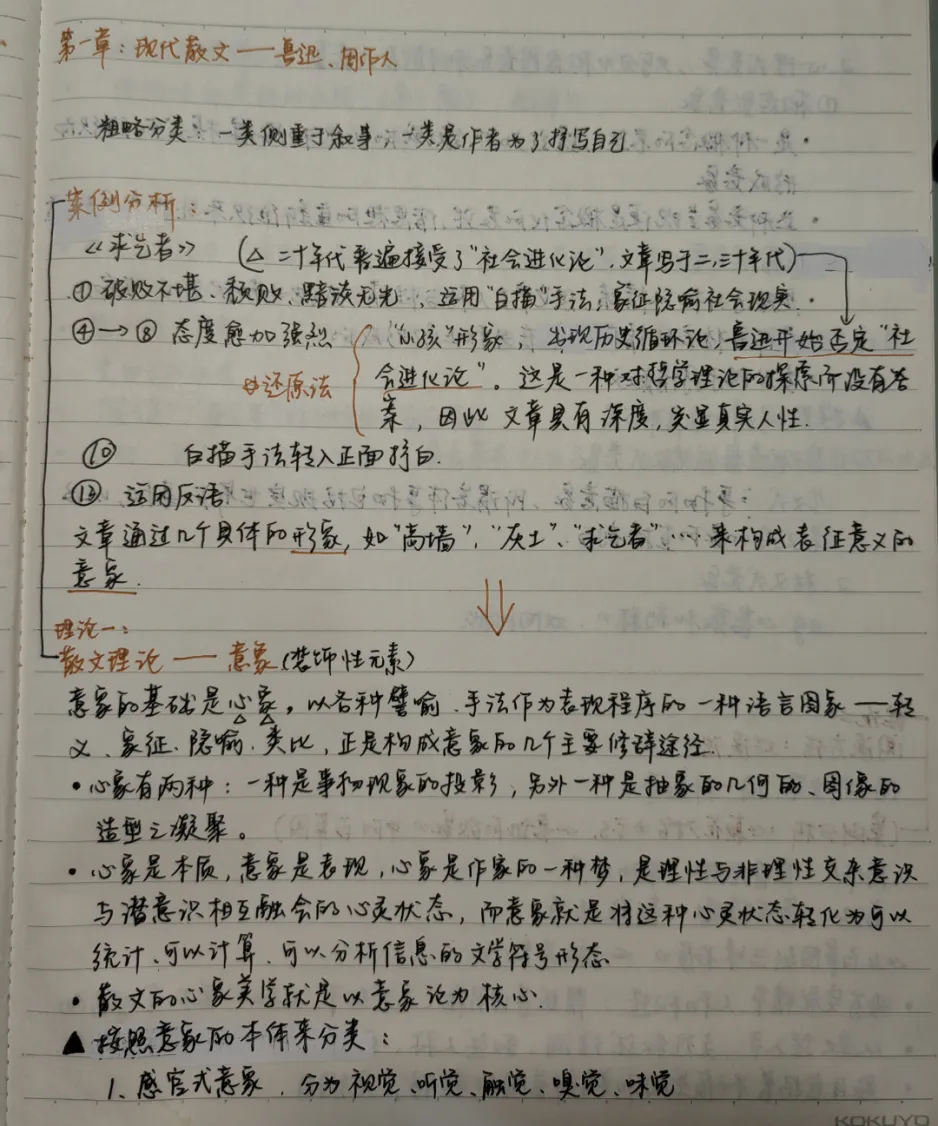 第一章：现代散文——鲁迅、周作人
粗略分类：一类侧重于叙事；一类是作者为了抒写自己
案例分析
《求乞者》（△ 二十年代普遍接受了“社会进化论”，文章写于二，三十年代）
① 破败不堪、颓败、黯淡无光，运用“白描”手法，象征隐喻社会现实.
④→⑧ 态度愈加强烈
还原法
“小孩”形象，出现历史循环论，鲁迅开始否定“社
会进化论”。这是一种对哲学理论的探索所没有答
案，因此文章具有深度，突显真实人性.
⑩ 白描手法转入正面抒白.
⑬ 运用反语
文章通过几个具体的形象，如“高墙”、“灰土”、“求乞者”…… 来构成表征意义的
意象.
理论一：
散文理论——意象（装饰性元素）
意象的基础是心象。以各种譬喻手法作为表现程序的一种语言图象——转
义、象征、隐喻、类比，正是构成意象的几个主要修辞途经.
•心象有两种：一种是事物现象的投影，另外一种是抽象的几何的、图像的
造型之凝聚。
•心象是本质，意象是表现，心象是作家的一种梦，是理性与非理性交杂意识
与潜意识相互融会的心灵状态，而意象就是将这种心灵状态转化为可以
统计、可以计算、可以分析信息的文学符号形态
•散文的心象美学就是以意象论为核心.
▲按照意象的本体来分类：
1、感官式意象，分为视觉、听觉、触觉、嗅觉、味觉
KOKUYO